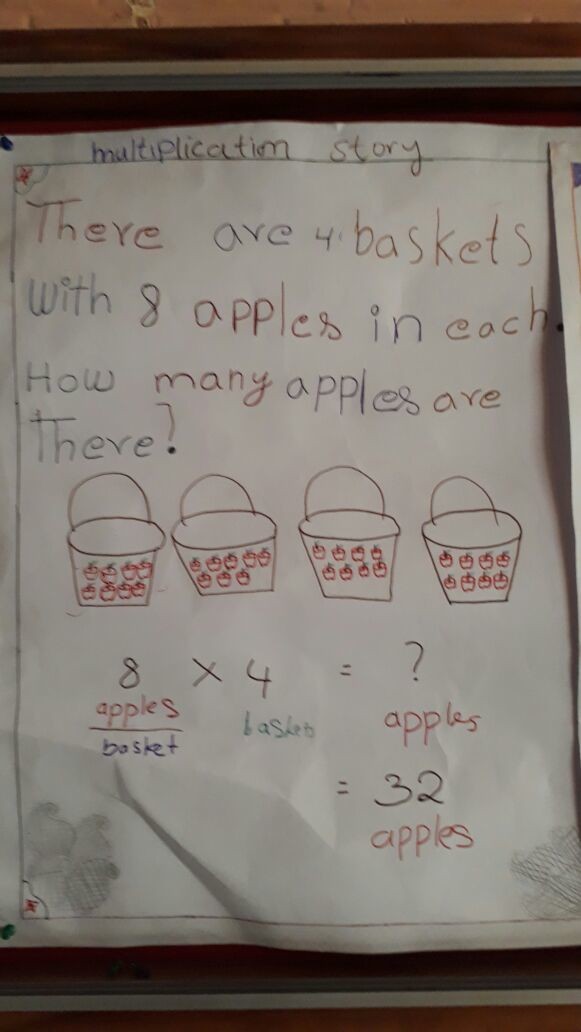 multiplication story
There are 4 baskets
with 8 apples in each.
How many apples are
there?
8 × 4 = ?
apples baskets apples
basket
= 32
apples